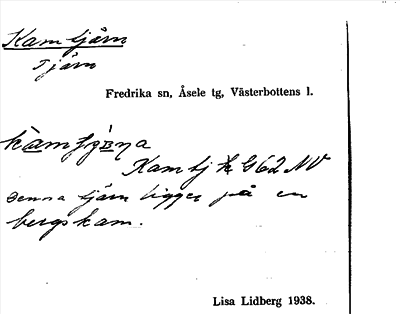 Kamtjärn
Tjärn
Fredrika sn, Åsele tg, Västerbottens l.
Kamtj G62 NV
Denna tjärn ligger på en
bergskam.
Lisa Lidberg 1938.